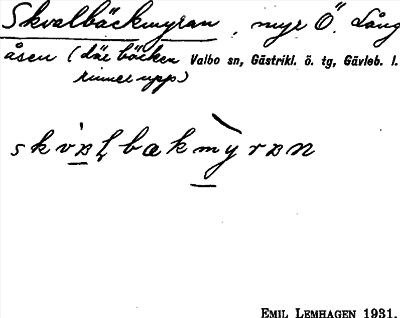 Skvalbäckmyran, myr Ö. Lång
åsen (där bäcken Valbo sn, Gästrikl. ö. tg, Gävleb. l.
rinner upp)
EMIL LEMHAGEN 1931.